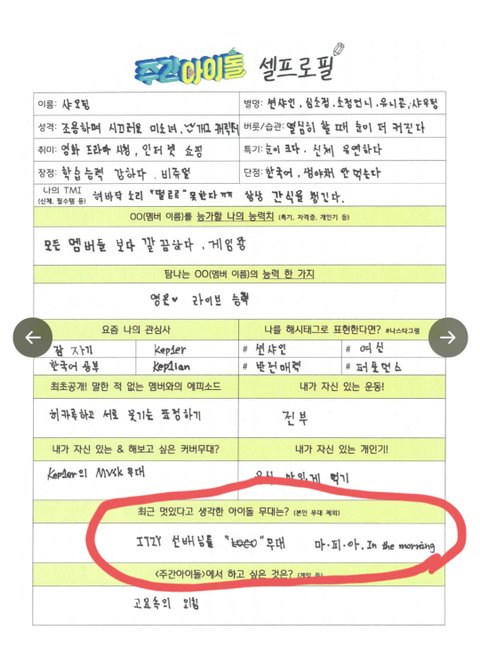 주간아이돌 셀프로필
이름: 샤오팅
별명: 썬샤인, 심소정, 소정언니, 유니콘, 샤우팅
성격: 조용하며 시끄러운 미소녀,
버릇/습관: 열심히 할 때 눈이 더 커진다
취미: 영화 드라마 시청, 인터넷 쇼핑
특기: 눈이 크다, 신체 유연하다
장점: 학습능력 강하다, 비쥬얼
단점: 한국어, 생야채 안 먹는다
나의 TMI
(신체, 필수템 등)
혀바닥 소리 "똴르르" 못한다 ㅠㅠ 항상 간식을 챙긴다.
OO(멤버 이름)를 능가할 나의 능력치 (특기, 자격증, 개인기 등)
모든 멤버들 보다 깔끔하다, 게임
탐나는 OO(멤버 이름)의 능력 한 가지
영은♥ 라이브 능력
요즘 나의 관심사
나를 해시태그로 표현한다면? #나스타그램
잠 자기
Kep1er
# 썬샤인
# 여신
한국어 공부
Kep1ian
# 반전매력
# 퍼포먼스
최초공개! 말한 적 없는 멤버와의 에피소드
내가 자신 있는 운동!
히카루하고 서로 웃기는 표정하기
전부
내가 자신 있는 & 해보고 싶은 커버무대?
내가 자신 있는 개인기!
Kep1er의 MVSK 무대
음식 맛있게 먹기
최근 멋있다고 생각한 아이돌 무대는? (본인 무대 제외)
ITZY 선배님들 "LOCO" 무대 마.피.아. In the morning
<주간아이돌>에서 하고 싶은 것은? (게임 등)
고요속의 외침